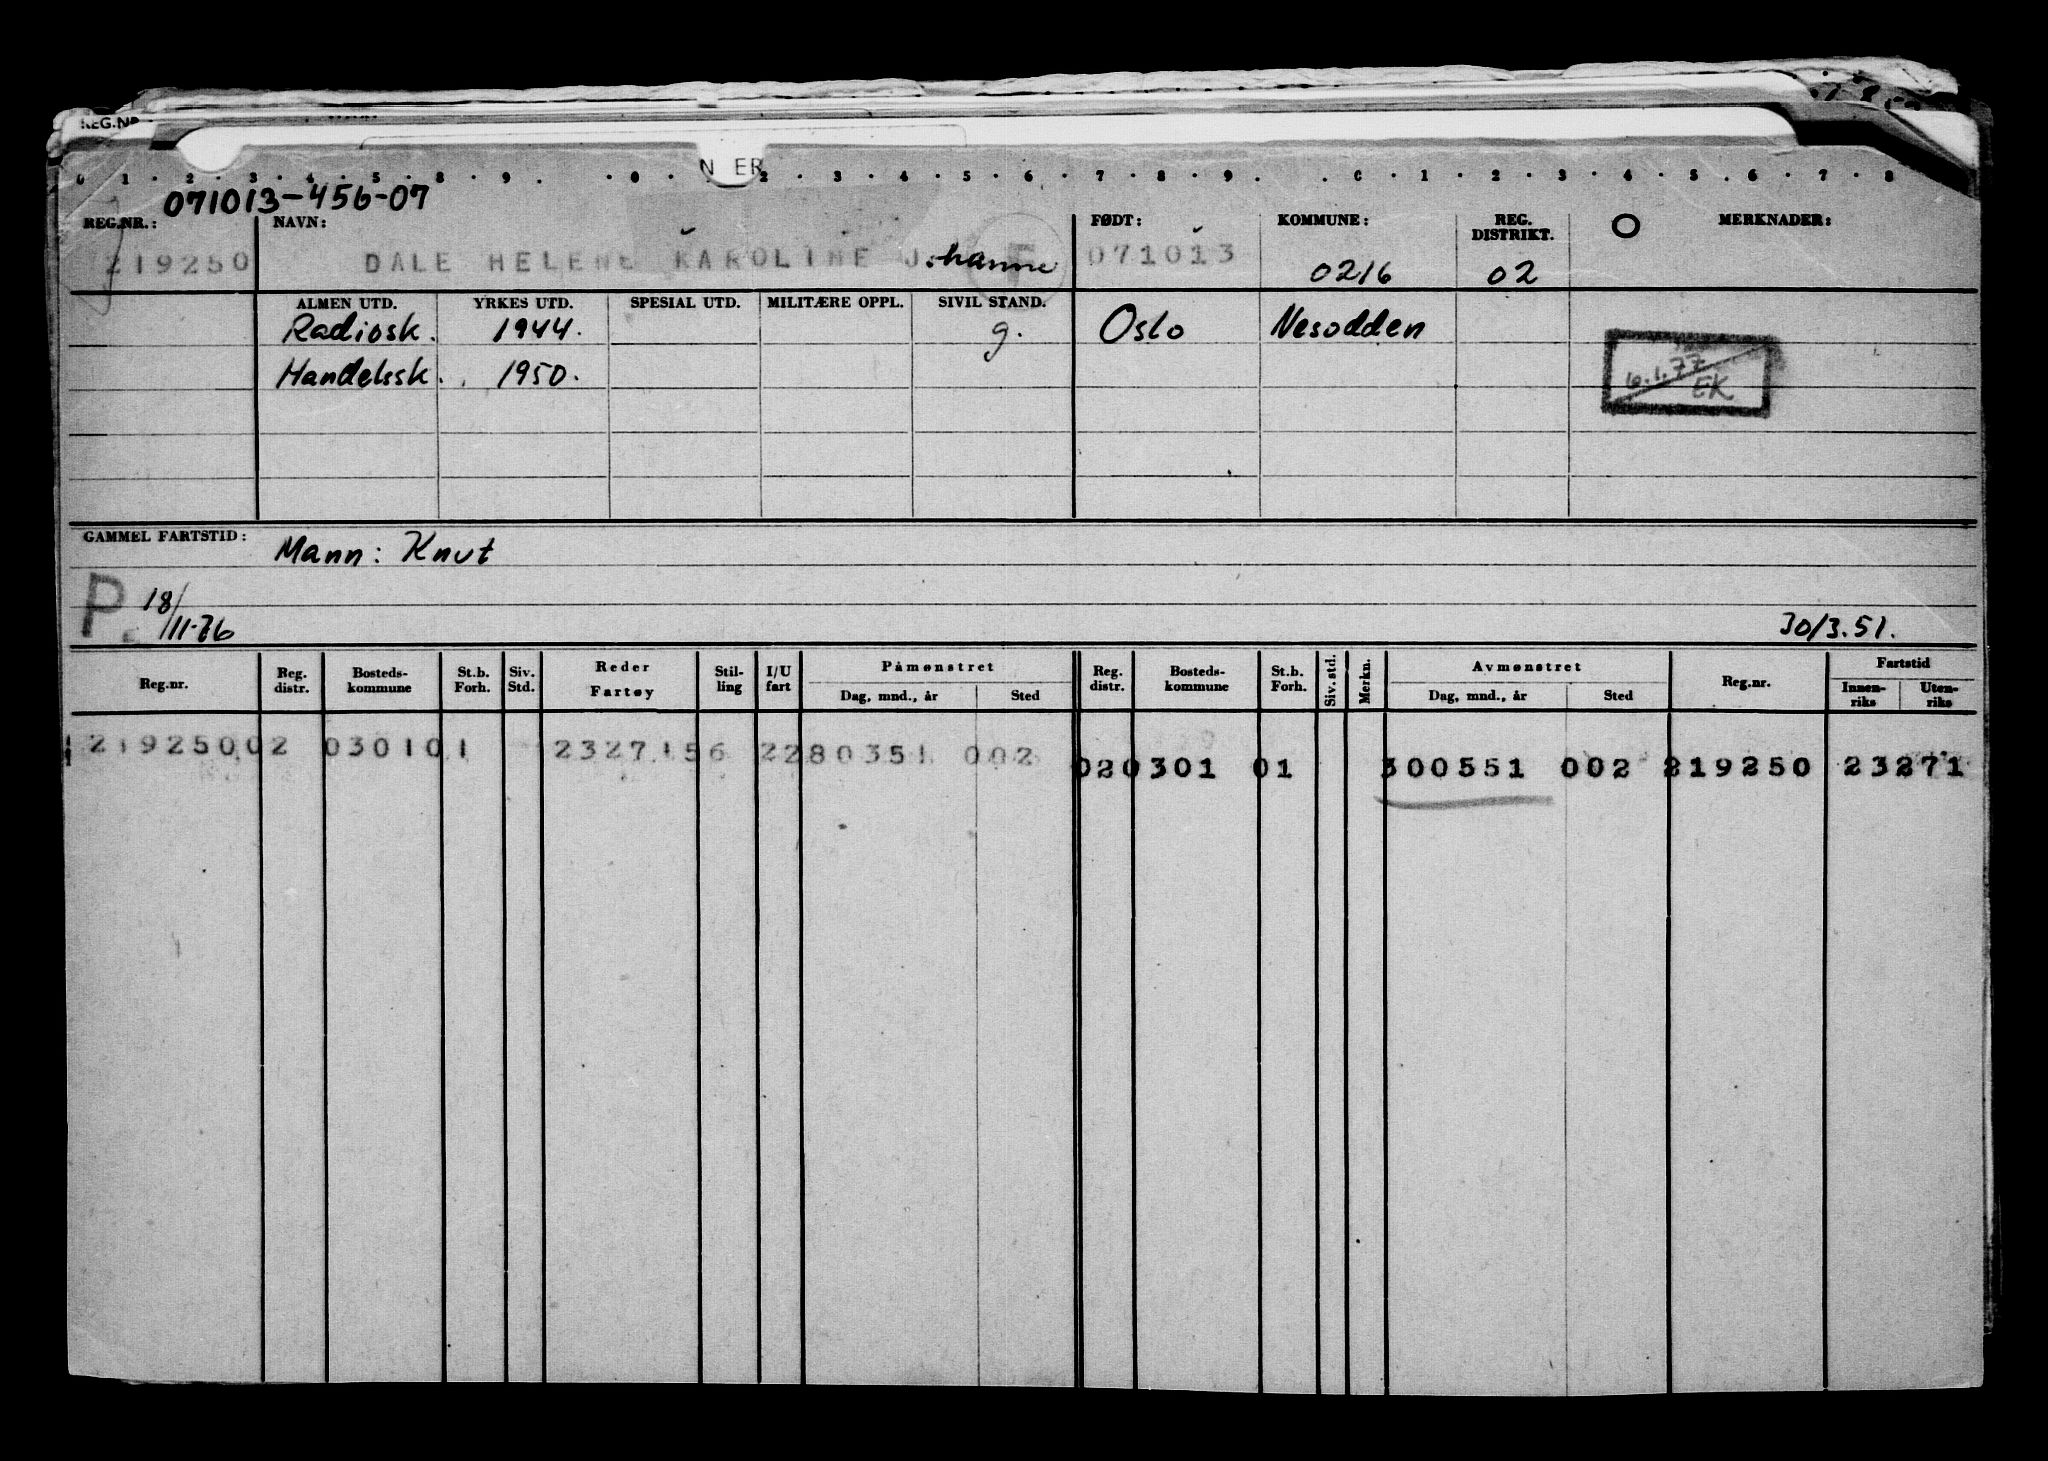 REG.NR
N ER
0 1 2 3 4 5 8 9 0 2 3 4 5 6 7 8 9 0 1 2 3 4 5 6 7 8
071013-456-07
REG.NR.: NAVN: FØDT: KOMMUNE: REG. DISTRIKT. O MERKNADER:
219250 DALE HELENE KAROLINE Johanne F 071013 0216 02
ALMEN UTD. YRKES UTD. SPESIAL UTD. MILITÆRE OPPL. SIVIL STAND.
Radiosk. 1944. g. Oslo Nesodden
Handelssk. 1950. 6.1.77 EK
GAMMEL FARTSTID: Mann: Knut
P 18/11-76 30/3.51.
Reg.nr. Reg. distr. Bosteds-kommune St.b. Forh. Siv. Std. Reder Fartøy Stil-ling I/U fart Påmønstret Dag, mnd., år Sted Reg. distr. Bosteds-kommune St.b. Forh. Siv. std. Merkn. Avmønstret Dag, mnd., år Sted Reg.nr. Fartstid Innen-riks Uten-riks
219250 02 0301 01 23271 56 2 280351 002 02 0301 01 300551 002 219250 23271